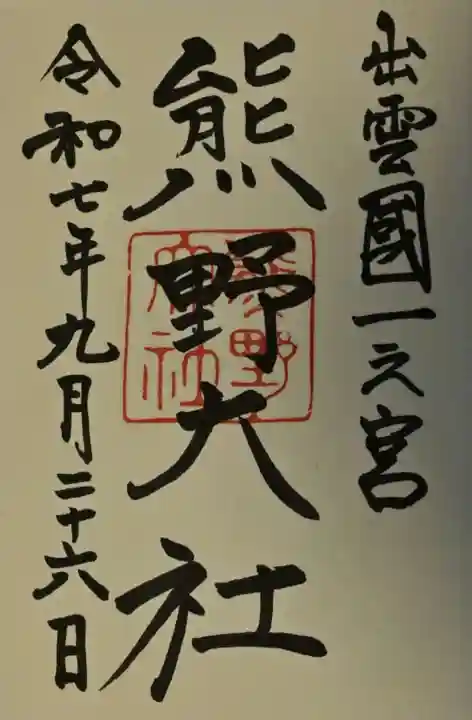 出雲國一之宮
熊野大社
熊野大社
令和七年九月二十六日